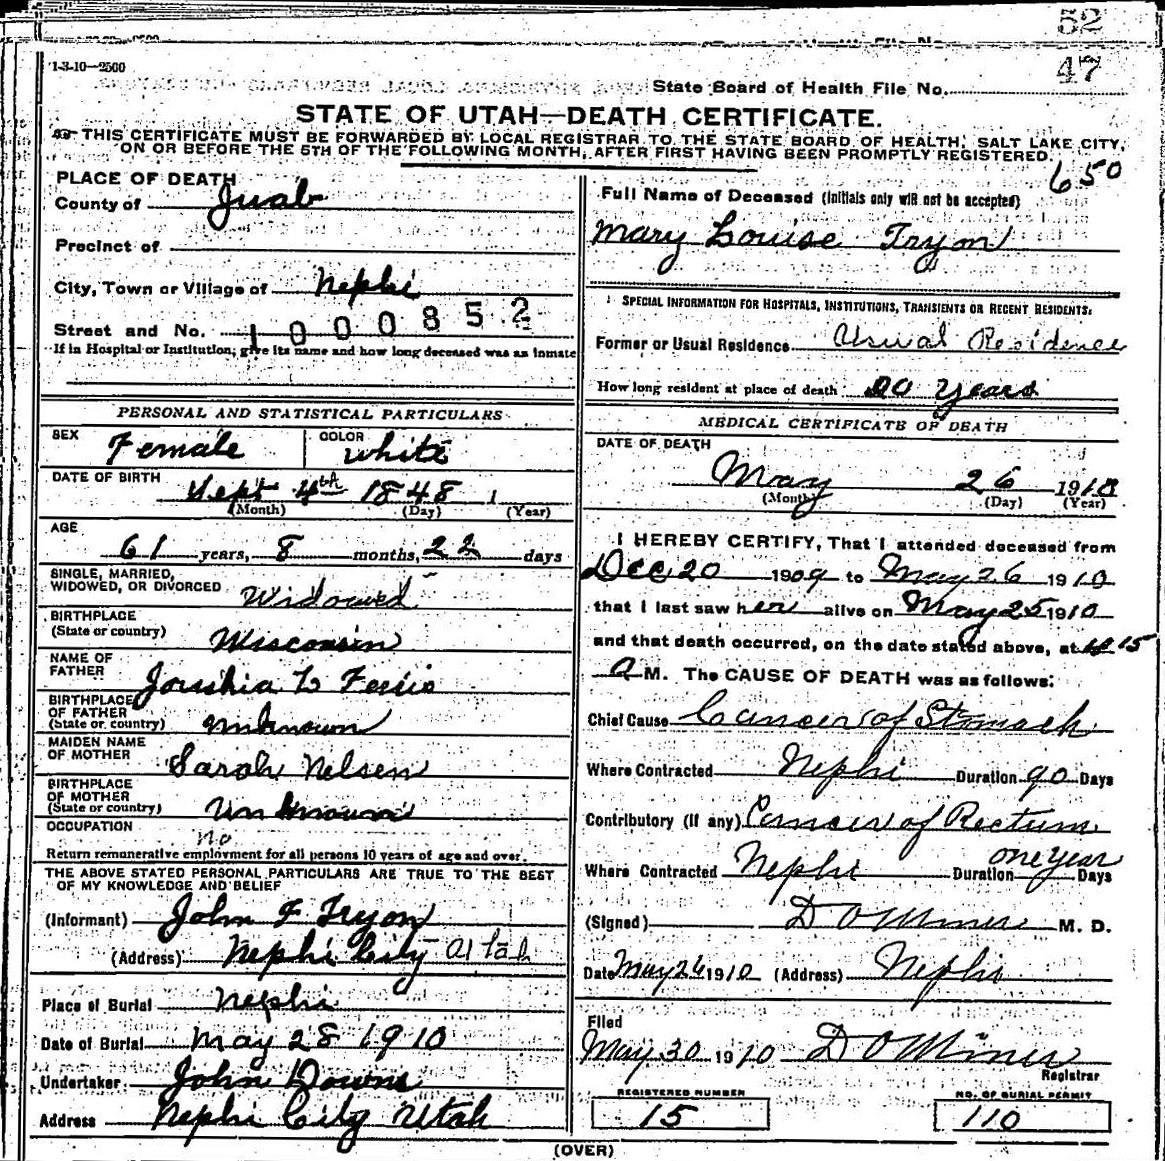 52
47
1-3-10—2500
State Board of Health File No.
STATE OF UTAH—DEATH CERTIFICATE.
THIS CERTIFICATE MUST BE FORWARDED BY LOCAL REGISTRAR TO THE STATE BOARD OF HEALTH, SALT LAKE CITY,
ON OR BEFORE THE 5TH OF THE FOLLOWING MONTH, AFTER FIRST HAVING BEEN PROMPTLY REGISTERED.
650
PLACE OF DEATH
County of Juab
Precinct of
City, Town or Village of Nephi
Street and No. 1000852
If in Hospital or Institution, give its name and how long deceased was an inmate
PERSONAL AND STATISTICAL PARTICULARS
SEX Female COLOR White
DATE OF BIRTH Sept 4th 1848
(Month) (Day) (Year)
AGE
61 years, 8 months, 22 days
SINGLE, MARRIED,
WIDOWED, OR DIVORCED Widowed
BIRTHPLACE
(State or country) Wisconsin
NAME OF
FATHER
BIRTHPLACE
OF FATHER
(State or country) unknown
MAIDEN NAME
OF MOTHER Sarah Nelsen
BIRTHPLACE
OF MOTHER
(State or country) Unknown
OCCUPATION no
Return remunerative employment for all persons 10 years of age and over.
THE ABOVE STATED PERSONAL PARTICULARS ARE TRUE TO THE BEST
OF MY KNOWLEDGE AND BELIEF
(Informant) John F Tryon
(Address) Nephi City Utah
Place of Burial Nephi
Date of Burial May 28 1910
Undertaker John Downs
Address Nephi City Utah
Full Name of Deceased (Initials only will not be accepted)
Mary Louise Tryon
SPECIAL INFORMATION FOR HOSPITALS, INSTITUTIONS, TRANSIENTS OR RECENT RESIDENTS:
Former or Usual Residence Usual Residence
How long resident at place of death Years
MEDICAL CERTIFICATE OF DEATH
DATE OF DEATH
May 26 1910
(Month) (Day) (Year)
I HEREBY CERTIFY, That I attended deceased from
Dec 20 1909 to May 26 1910
that I last saw her alive on May 25 1910
and that death occurred, on the date stated above, at 15
a M. The CAUSE OF DEATH was as follows:
Chief Cause Cancer of Stomach
Where Contracted Nephi Duration 90 Days
Contributory (if any) Cancer of Rectum
Where Contracted Nephi Duration one year Days
(Signed) D O Miner M. D.
Date May 26 1910 (Address) Nephi
Filed
May 30 1910 D O Miner
Registrar
REGISTERED NUMBER
15
NO. OF BURIAL PERMIT
110
(OVER)